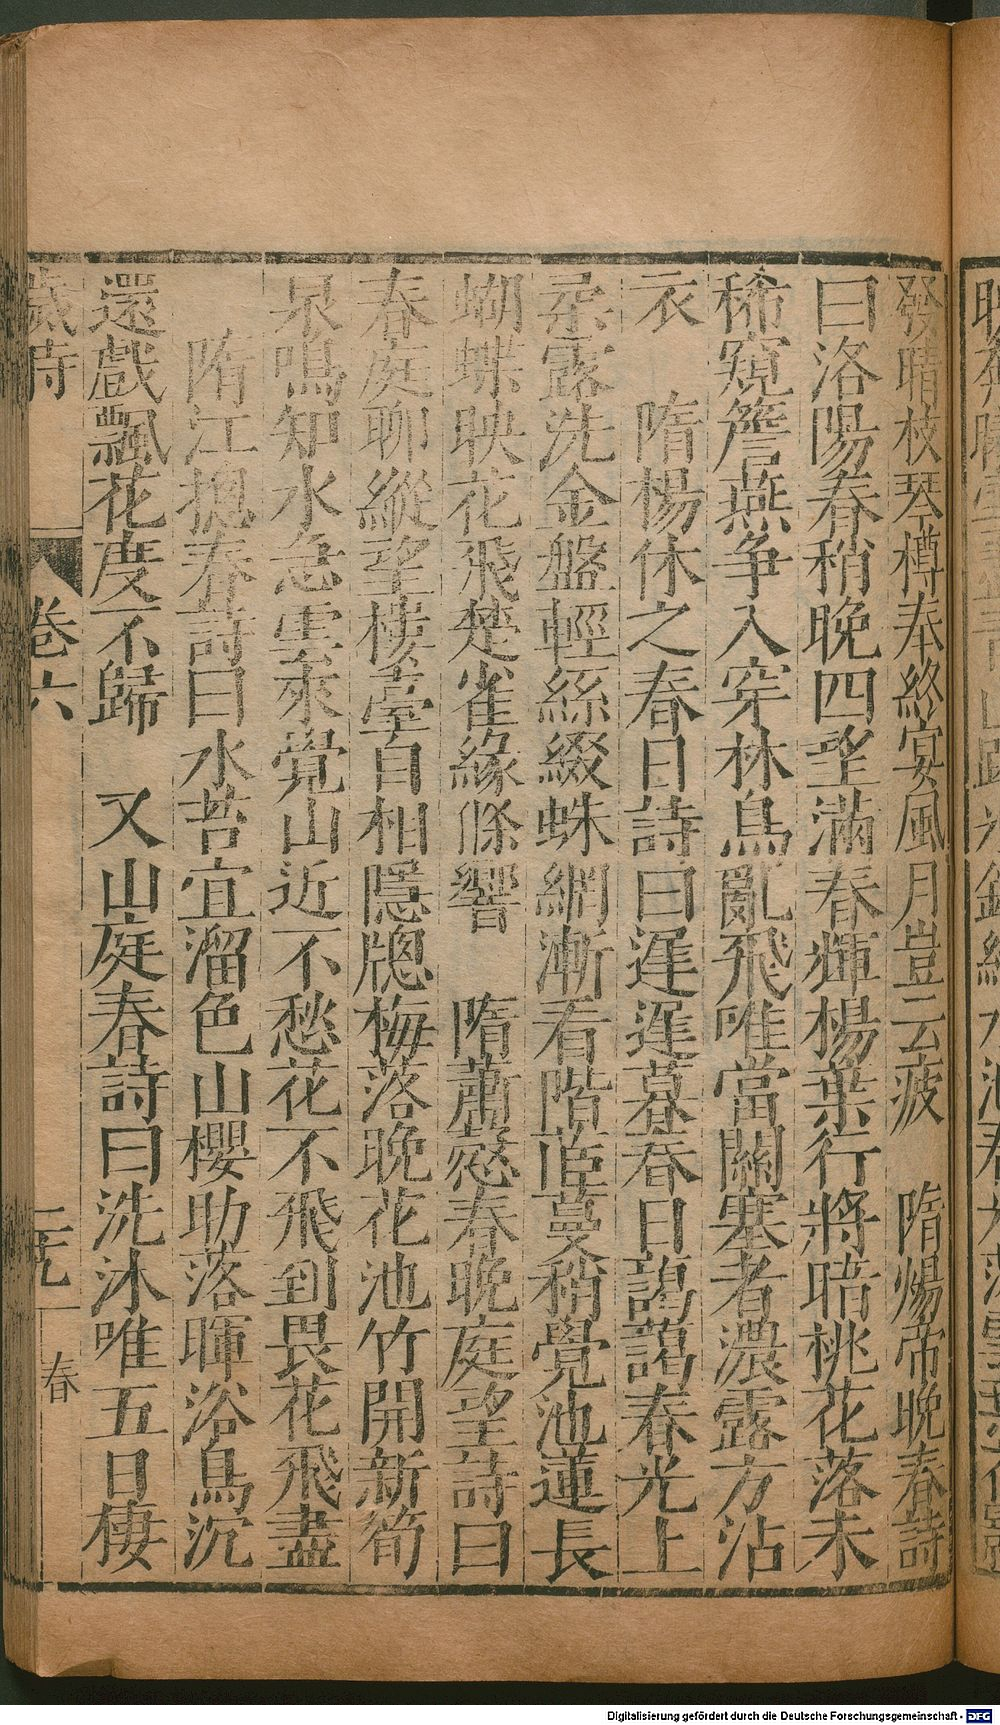 發晴枝琴樽奉終宴風月豈云疲　隋煬帝晚春詩
曰洛陽春稍晚四望滿春輝楊葉行將暗桃花落未
稀窺簷燕爭入穿林鳥亂飛唯當關塞者濃露方沾
衣　隋楊休之春日詩曰遲遲暮春日藹藹春光上
柔露洗金盤輕絲綴蛛網漸看階蔓稍覺池蓮長
蝴蝶映花飛楚雀緣條響　隋蕭愨春晚庭望詩曰
春庭聊縱望樓臺自相隱牕梅落晚花池竹開新筍
泉鳴知水急雲來覺山近不愁花不飛到畏花飛盡
隋江摠春詩曰水苔宜溜色山櫻助落暉浴鳥沉
還戲飄花度不歸　又山庭春詩曰洗沐唯五日棲
歲時　卷六　二十九　春
Digitalisierung gefördert durch die Deutsche Forschungsgemeinschaft - DFG